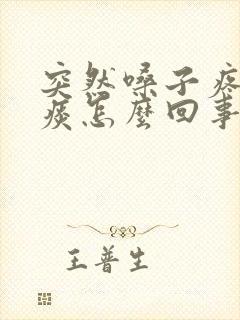 突然嗓子疼
痰怎麼回事
王普生